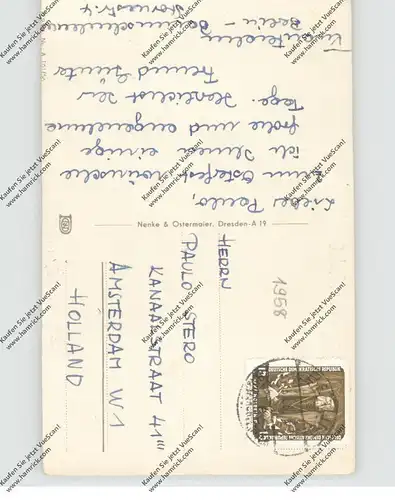 Lieber Paulo,
zum Osterfest wünsche
ich Ihnen einige
frohe und angenehme
Tage. Herzlichst Ihr
Freund Günter
Berlin -
Nenke & Ostermaier, Dresden-A 19
1958
HERRN
PAULO STERO
KANAALSTRAAT 41'''
AMSTERDAM W1
HOLLAND
DEUTSCHE DEMOKRATISCHE REPUBLIK
Kaufen Sie jetzt VueScan!
www.hamrick.com